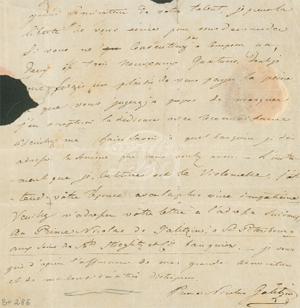 grand admirateur de votre talent, je prends la
liberté de vous écrire pour vous demander
si vous ne consentiriez pas à composer un,
deux ou trois nouveaux Quatuors, dont
je me ferais un plaisir de vous payer la peine
que vous jugerez à propos de marquer
j'en accepterai la dédicace avec reconnaissance
Veuillez me faire savoir à quel banquier je dois
adresser la somme que vous voulez avoir. L'instru-
ment que je cultive est le Violoncelle. J'at-
tends votre réponse avec la plus vive impatience
Veuillez m'adresser votre lettre à l'adresse suivante
Au Prince Nicolas de Galitzin à St. Petersbourg
aux soins de Mrs Stieglitz et Co banquiers. Je vous
prie d'agréer l'assurance de ma grande admiration
et de ma considération distinguée
Prince Nicolas Galitzin
BH 286